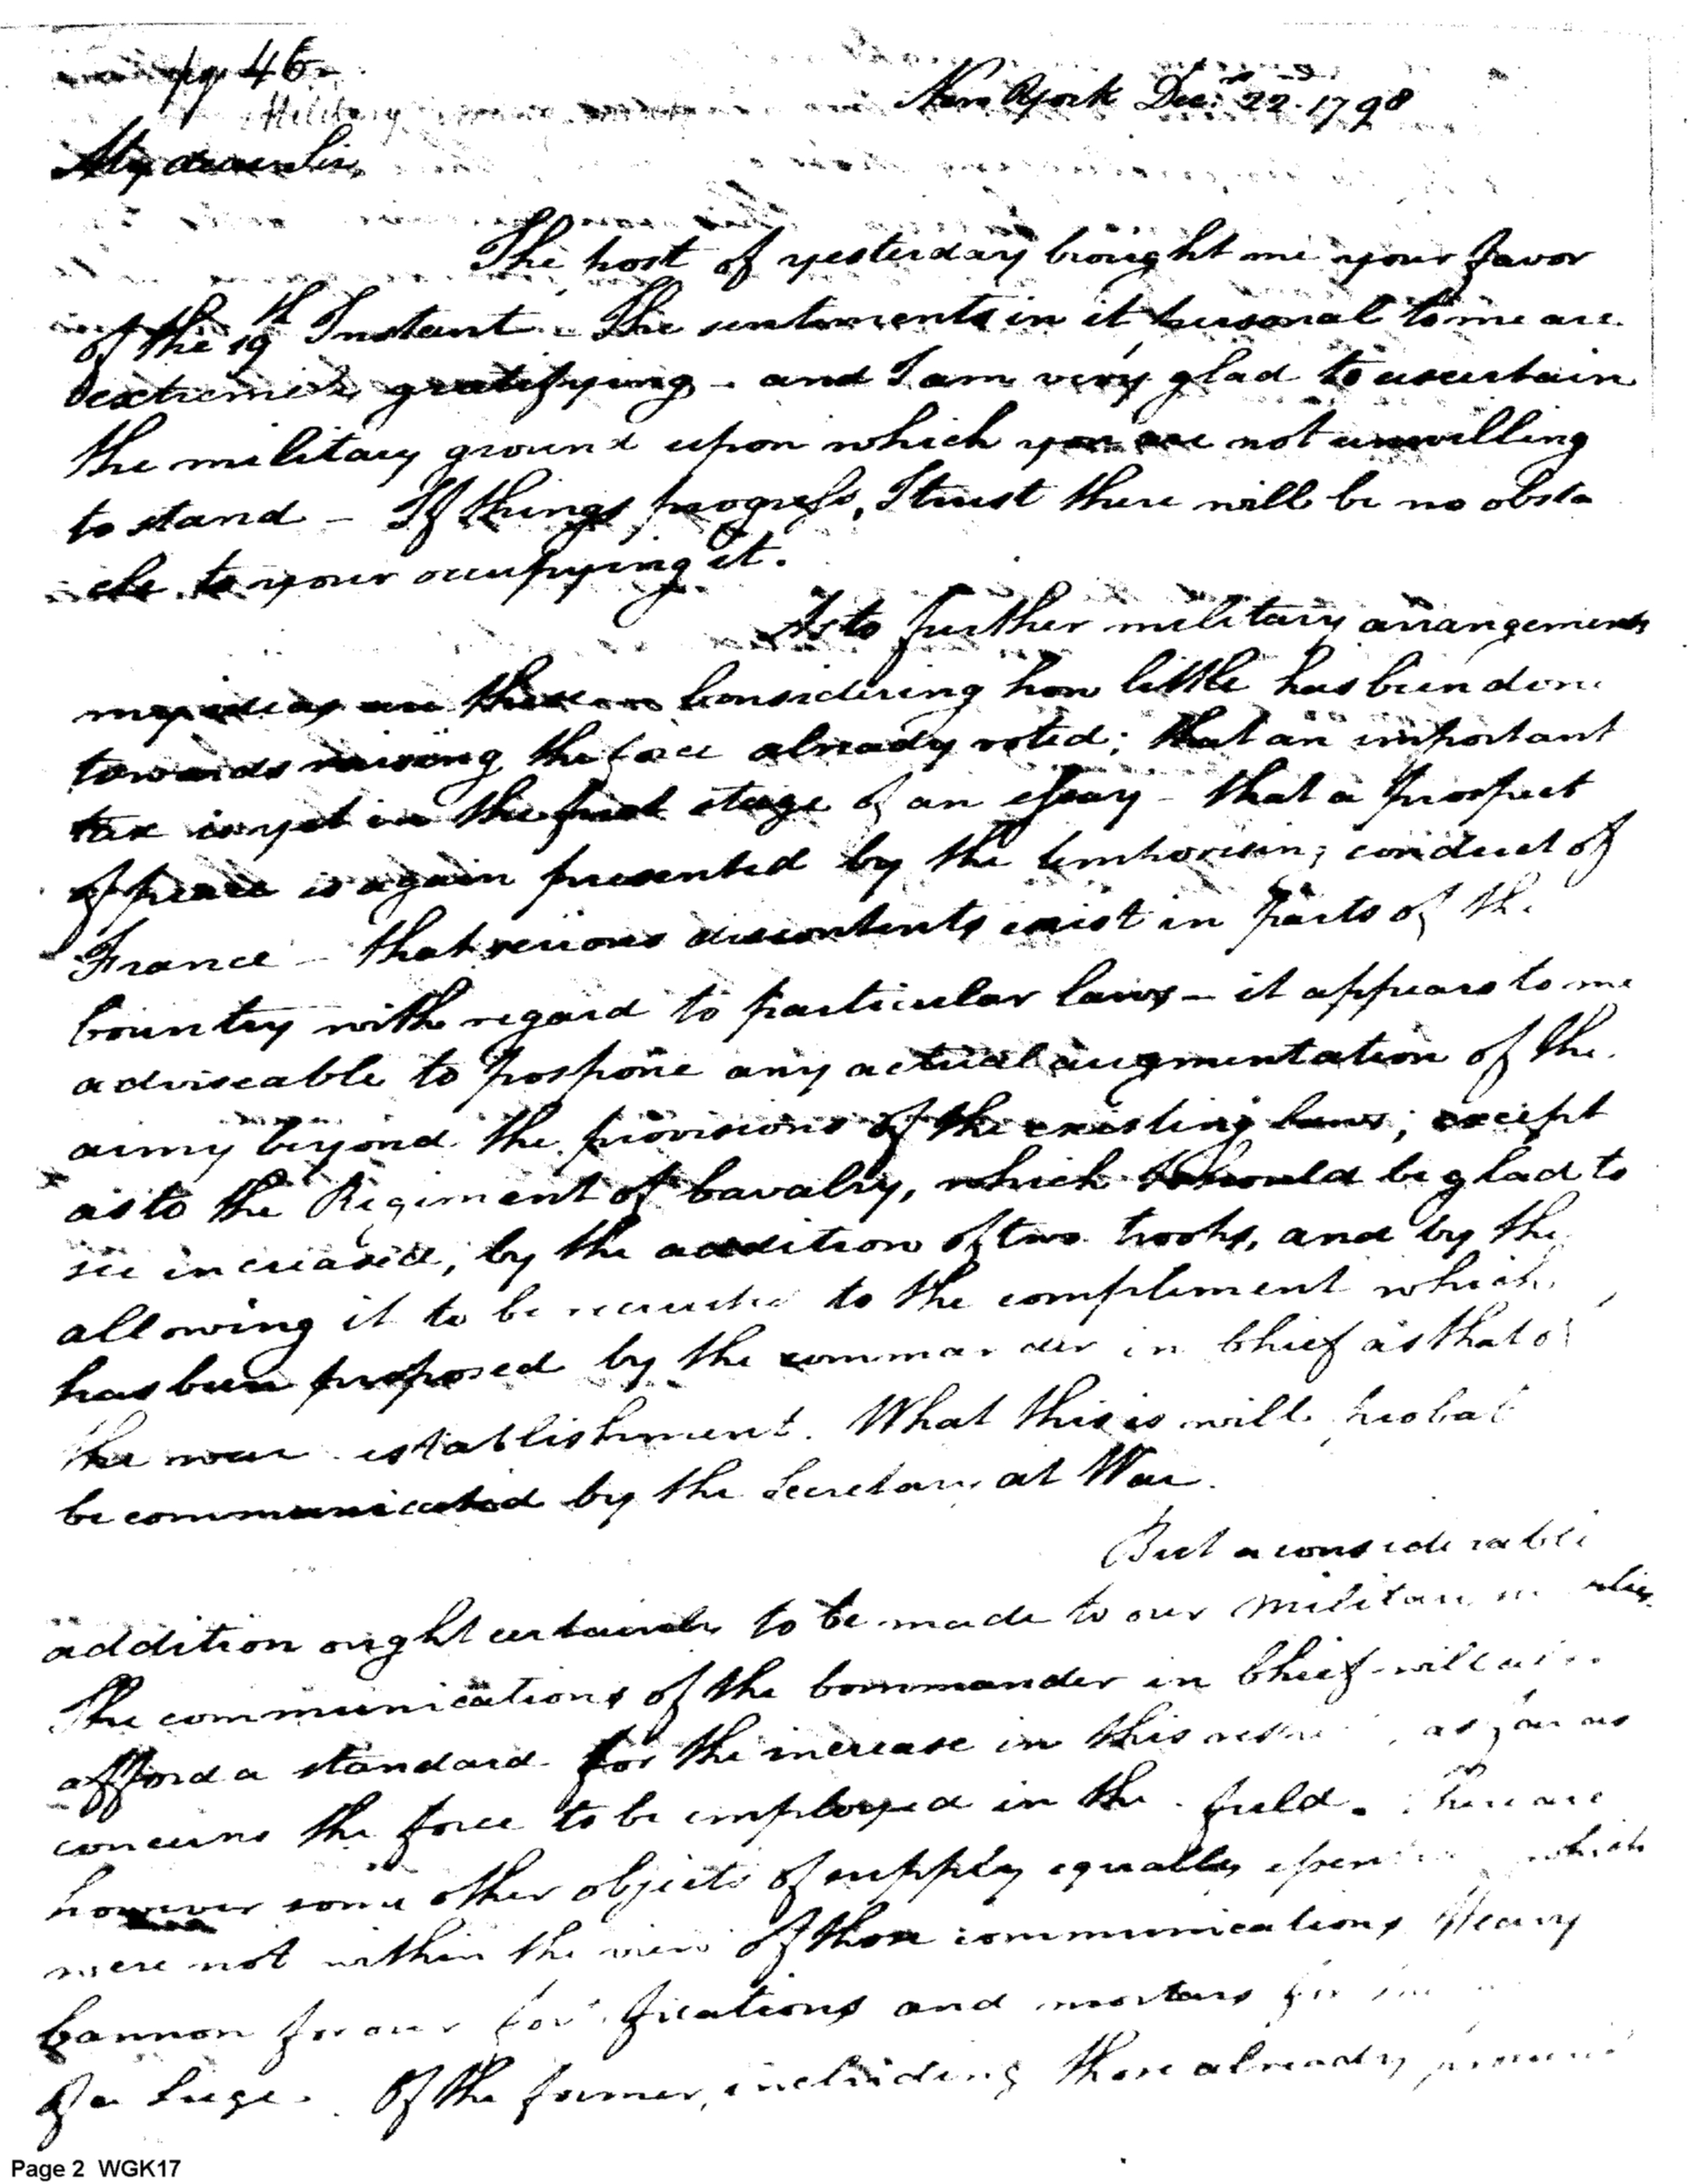 pg 46
Military
New York Decr. 22. 1798
My dear Sir
The post of yesterday brought me your favor
of the 19th Instant. The sentiments in it personal to me are
extremely gratifying - and I am very glad to ascertain
the military ground upon which you are not unwilling
to stand - If things progress, I trust there will be no obsta
cle to your occupying it.
As to further military arrangements
my ideas are these Considering how little has been done
towards raising the force already voted; that an important
tax is yet in the first stage of an essay - that a prospect
of peace is again presented by the temporising conduct of
France - that serious discontents exist in parts of the
Country with regard to particular laws - it appears to me
adviseable to postpone any actual augmentation of the
army beyond the provisions of the existing laws; except
as to the Regiment of Cavalry, which I should be glad to
see increased, by the addition of two troops, and by the
allowing it to be recruited to the compliment which
has been proposed by the commander in Chief as that of
the war establishment. What this is will probab
be communicated by the Secretary at War.
But a considerable
addition ought certainly to be made to our military
The communications of the Commander in Chief will
afford a standard for the increase in this respect, as far as
concerns the force to be employed in the field. There are
however some other objects of supply equally essential which
were not within the view of those communications Heavy
Cannon for our fortifications and mortars for
of a Siege. Of the former, including those already
Page 2 WGK17